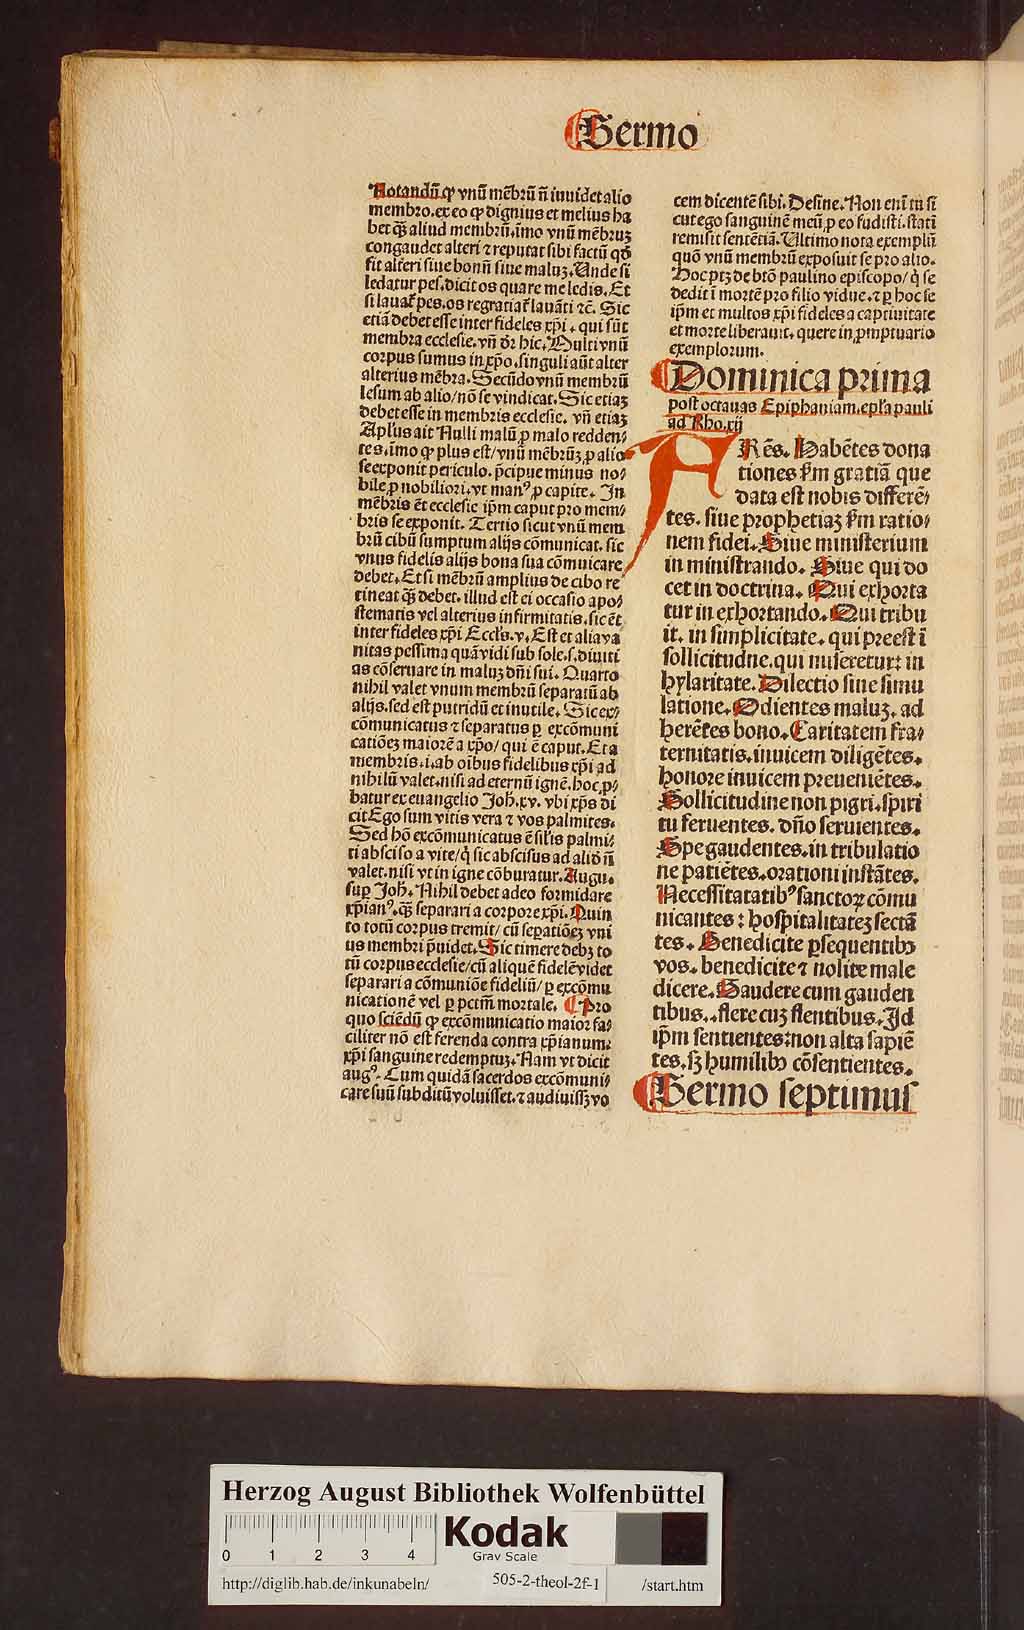 Sermo
Notandū ꝙ vnū mēbrū nō inuidet alio
membro. ex eo ꝙ dignius et melius ha
bet qꝫ aliud membrū. īmo vnū mēbruꝫ
congaudet alteri ⁊ reputat sibi factū qd̄
fit alteri siue bonū siue maluꝫ. Unde si
ledatur pes. dicit os quare me ledis. Et
si lauat̄ pes. os regratiat̄ lauāti ⁊c̄. Sic
etiā debet esse inter fideles xp̄i. qui sūt
membra ecclesie. vn̄ dr̄ hic. Multi vnū
corpus sumus in xp̄o. singuli aūt alter
alterius mēbra. Secūdo vnū membrū
lesum ab alio/ nō se vindicat. Sic etiaꝫ
debet esse in membris ecclesie. vn̄ etiaꝫ
Apl̄us ait Nulli malū ꝓ malo redden⸗
tes. īmo ꝙ plus est/ vnū mēbrūꝫ ꝓ alio
se exponit periculo. p̄cipue minus no⸗
bile ꝓ nobiliori. vt manꝰ ꝓ capite. In
mēbris ēt ecclesie ip̄m caput pro mem⸗
bris se exponit. Tertio sicut vnū mem
brū cibū sumptum alijs cōmunicat. sic
vnus fidelis alijs bona sua cōmuicare
debet. Et si mēbrū amplius de cibo re⸗
tineat qꝫ debet. illud est ei occasio apo⸗
stematis vel alterius infirmitatis. sic ēt
inter fideles xp̄i Eccl̄s. v. Est et alia va
nitas pessima quā vidi sub sole. s. diuiti
as cōseruare in maluꝫ dn̄i sui. Quarto
nihil valet vnum membrū separatū ab
alijs. sed est putridū et inutile. Sic ex⸗
cōmunicatus ⁊ separatus ꝑ excōmuni
catiōeꝫ maiorē a xp̄o/ qui ē caput. Et a
membris. i. ab oībus fidelibus xp̄i ad
nihilū valet. nisi ad eternū ignē. hoc ꝓ⸗
batur ex euangelio Joh. xv. vbi xp̄s di
cit Ego sum vitis vera ⁊ vos palmites.
Sed hō excōmunicatus ē sil̄is palmi⸗
ti absciso a vite/ q̇ sic abscisus ad aliō n̄
valet. nisi vt in igne cōburatur. Augu.
suꝑ Joh. Nihil debet adeo formidare
xp̄ianꝰ. qꝫ separari a corpore xp̄i. Quin
to totū corpus tremit/ cū seꝑatiōeꝫ vni
us membri p̄uidet. Sic timere debꝫ to
tū corpus ecclesie/ cū aliquē fidelē videt
separari a cōmuniōe fideliū/ ꝑ excōmu
nicationē vel ꝑ pctm̄ mortale. Pro
quo sciēdū ꝙ excōmunicatio maior fa⸗
ciliter nō est ferenda contra xp̄ianum.
xp̄i sanguine redemptuꝫ. Nam vt dicit
augꝰ. Cum quidā sacerdos excōmuni⸗
care suū subditū voluisset. ⁊ audiuissꝫ vo
cem dicentē sibi. Desine. Non enī tu si
cut ego sanguinē meū ꝓ eo fudisti. statī
remisit sentētiā. Ultimo nota exemplū
quō vnū membrū exposuit se pro alio.
Hoc ptꝫ de btō paulino episcopo/ q̇ se
dedit ī mortē pro filio vidue. ⁊ ꝑ hoc se
ip̄m et multos xp̄i fideles a captiuitate
et morte liberauit. quere in ꝓmptuario
exemplorum.
Dominica prima
post octauas Epiphaniam. epl̄a pauli
ad Rho. xij
FRēs. Habētes dona
tiones s̄m gratiā que
data est nobis differē⸗
tes. siue prophetiaꝫ s̄m ratio⸗
nem fidei. Siue ministerium
in ministrando. Siue qui do
cet in doctrina. Qui exhorta
tur in exhortando. Qui tribu
it. in simplicitate. qui preest ī
sollicitudne. qui miseretur: in
hylaritate. Dilectio sine simu
latione. Odientes maluꝫ. ad
herētes bono. Caritatem fra⸗
ternitatis. inuicem diligētes.
honore inuicem preueniētes.
Sollicitudine non pigri. spiri
tu feruentes. dn̄o seruientes.
Spe gaudentes. in tribulatio
ne patiētes. orationi instātes.
Necessitatatibꝰ sanctoꝝ cōmu
nicantes: hospitalitateꝫ sectā
tes. Benedicite ꝑsequentibꝫ
vos. benedicite ⁊ nolite male
dicere. Gaudere cum gauden
tibus.. flere cuꝫ flentibus. Id
ip̄m sentientes: non alta sapiē
tes. sꝫ humilibꝫ cōsentientes.
Sermo septimus
Herzog August Bibliothek Wolfenbüttel
0 1 2 3 4
Kodak
Gray Scale
http://diglib.hab.de/inkunabeln/ 505-2-theol-2f-1 /start.htm